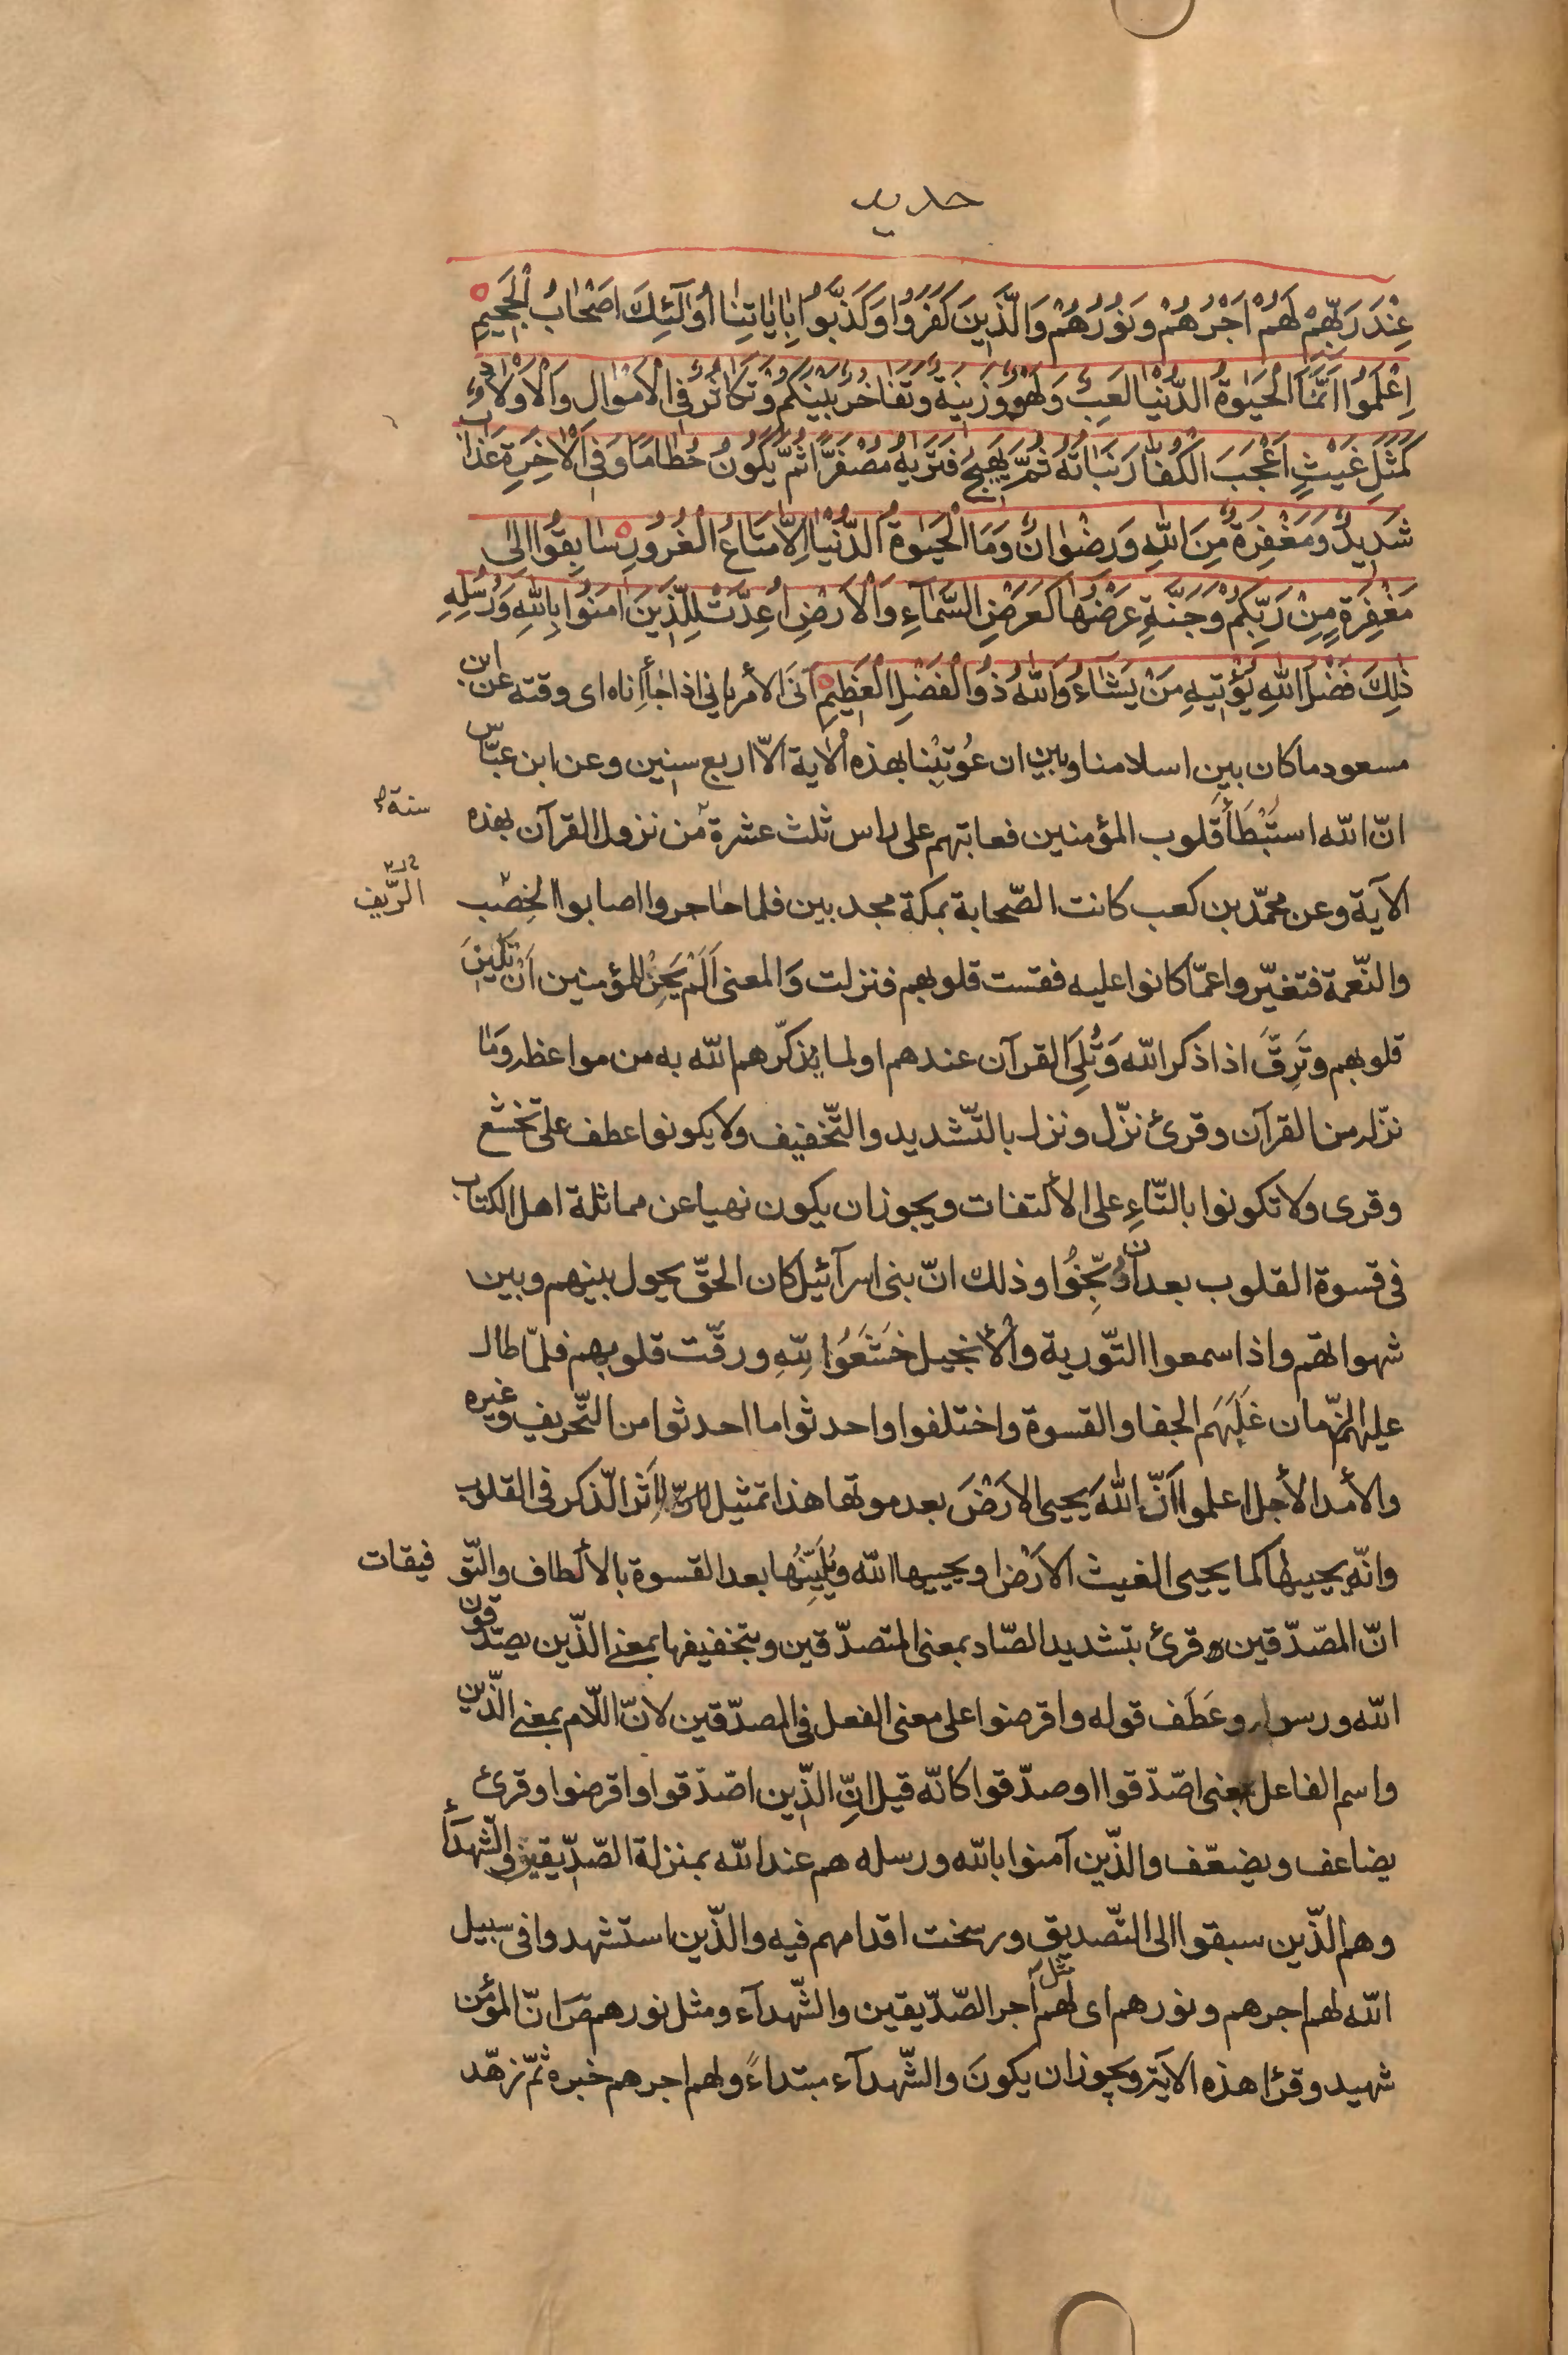 حديد
عِنْدَ رَبِّهِمْ لَهُمْ اَجْرُهُمْ وَنُورُهُمْ وَالَّذِينَ كَفَرُوا وَكَذَّبُوا بِاٰيَاتِنَا اُولٰٓئِكَ اَصْحَابُ الْجَحِيمِ
اِعْلَمُوا اَنَّمَا الْحَيٰوةُ الدُّنْيَا لَعِبٌ وَلَهْوٌ وَزِينَةٌ وَتَفَاخُرٌ بَيْنَكُمْ وَتَكَاثُرٌ فِى الْاَمْوَالِ وَالْاَوْلَادِ
كَمَثَلِ غَيْثٍ اَعْجَبَ الْكُفَّارَ نَبَاتُهُ ثُمَّ يَهِيجُ فَتَرٰيهُ مُصْفَرًّا ثُمَّ يَكُونُ حُطَامًا وَفِى الْاٰخِرَةِ عَذَابٌ
شَدِيدٌ وَمَغْفِرَةٌ مِنَ اللّٰهِ وَرِضْوَانٌ وَمَا الْحَيٰوةُ الدُّنْيَا اِلَّا مَتَاعُ الْغُرُورِ سَابِقُوا اِلٰى
مَغْفِرَةٍ مِنْ رَبِّكُمْ وَجَنَّةٍ عَرْضُهَا كَعَرْضِ السَّمَآءِ وَالْاَرْضِ اُعِدَّتْ لِلَّذِينَ اٰمَنُوا بِاللّٰهِ وَرُسُلِهِ
ذٰلِكَ فَضْلُ اللّٰهِ يُؤْتِيهِ مَنْ يَشَاءُ وَاللّٰهُ ذُو الْفَضْلِ الْعَظِيمِ اَنَى الأمر يانى اذا جاء اناه اى وقته عن ابن
مسعود ما كان بين اسلامنا وبين ان عُوتِبْنا بهذه الاية الّا اربع سنين وعن ابن عبّاس
انّ الله استَبْطَأَ قلوب المؤمنين فعاتبهم على راس ثلث عشرة من نزول القرآن بهذه
سنة
الآية وعن محمّد بن كعب كانت الصّحابة بمكة مجدبين فلما هاجروا اصابوا الخِصْب
الرّيف
والنّعمة فتغيّروا عمّا كانوا عليه فقست قلوبهم فنزلت وَالمعنى اَلَمْ يَحِنْ للمؤمنين اَنْ تَلِينَ
قلوبهم وتَرِقَّ اذا ذكر الله وَتُلِىَ القرآن عندهم او لما يذكّرهم الله به من مواعظه وَمَا
نزّله من القرآن وقرئ نزّل ونزل بالتّشديد والتّخفيف ولا يكونوا عطف على تخشع
وقرى ولا تكونوا بالتّاءِ على الألتفات ويجوز ان يكون نهيا عن مماثلة اهل الكتاب
فى قسوة القلوب بعد ان وُبِّخُوا وذلك انّ بنى اسرآئيل كان الحقّ يحول بينهم وبين
شهواتهم واذا سمعوا التّورية والأنجيل خَشَعُوا لِلّهِ ورقّت قلوبهم فلمّا طال
عليهم الزّمان غَلَبَهم الجفا والقسوة واختلفوا واحدثوا ما احدثوا من التّحريف وغيره
والأمد الأجل اعلموا اَنّ اللّٰهَ يحيى الاَرْضَ بعد موتها هذا تمثيل لِاَثَر الذّكر فى القلوب
وانّه يحييها كما يحيى الغيث الاَرْضَ او يحييها الله ويُلَيِّنُها بعد القسوة بالألطاف والتّو فيقات
انّ المصّدّقين وقرئ بتشديد الصّاد بمعنى المتصدّقين وبتخفيفها بمعنى الذّين يصدّقون
الله ورسوله وعَطَف قوله واقرضوا على معنى الفعل فى المصدّقين لانّ اللّام بمعنى الذّين
واسم الفاعل بمعنى اصّدّقوا او صدّقوا كانّه قيل انّ الذّين اصّدّقوا واقرضوا وقرئ
يضاعف ويضعّف والذّين آمنوا بالله ورسله هم عند الله بمنزلة الصّدّيقين والشّهدآء
وهم الذّين سبقوا الى التّصديق ورسخت اقدامهم فيه والذّين استشهدوا فى سبيل
الله لهم اجرهم ونورهم اى لهم مثل اجر الصّدّيقين والشّهدآء ومثل نورهم صَ انّ المؤمن
شهيد وقرا هذه الآية ويجوز ان يكونَ والشّهدآء مبتداءً ولهم اجرهم خبره ثمّ زهّد